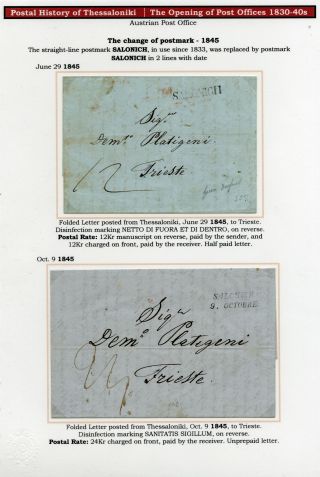 Postal History of Thessaloniki | The Opening of Post Offices 1830-40s
Austrian Post Office
The change of postmark - 1845
The straight-line postmark SALONICH, in use since 1833, was replaced by postmark
SALONICH in 2 lines with date
June 29 1845
SALONICH
Sigr
Demo Platigeni
12
Trieste
Folded Letter posted from Thessaloniki, June 29 1845, to Trieste.
Disinfection marking NETTO DI FUORA ET DI DENTRO, on reverse.
Postal Rate: 12Kr manuscript on reverse, paid by the sender, and
12Kr charged on front, paid by the receiver. Half paid letter.
Oct. 9 1845
SALONICH
9. OCTOBRE
Sigr
Demo Platigeni
Trieste.
Folded Letter posted from Thessaloniki, Oct. 9 1845, to Trieste.
Disinfection marking SANITATIS SIGILLUM, on reverse.
Postal Rate: 24Kr charged on front, paid by the receiver. Unprepaid letter.